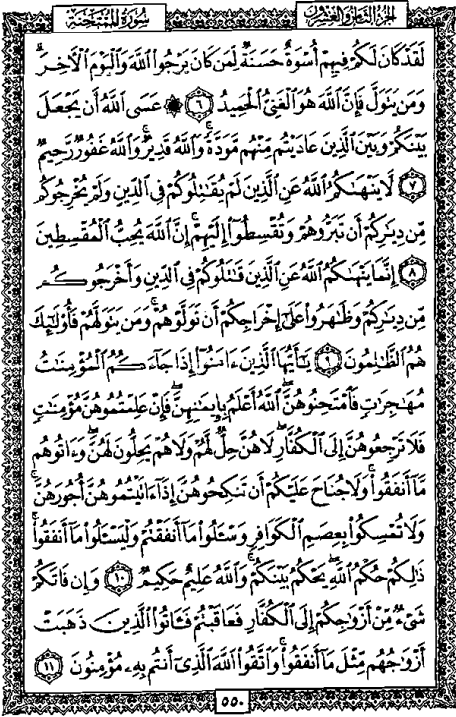 سُورَةُ المُمْتَحنَةِ
الجُزءُ الثَّامِنُ وَالعِشْرُونَ
لَقَدْ كَانَ لَكُمْ فِيهِمْ أُسْوَةٌ حَسَنَةٌ لِّمَن كَانَ يَرْجُوا۟ ٱللَّهَ وَٱلْيَوْمَ ٱلْـَٔاخِرَ ۚ
وَمَن يَتَوَلَّ فَإِنَّ ٱللَّهَ هُوَ ٱلْغَنِىُّ ٱلْحَمِيدُ ٦ ۞ عَسَى ٱللَّهُ أَن يَجْعَلَ
بَيْنَكُمْ وَبَيْنَ ٱلَّذِينَ عَادَيْتُم مِّنْهُم مَّوَدَّةً ۚ وَٱللَّهُ قَدِيرٌ ۚ وَٱللَّهُ غَفُورٌ رَّحِيمٌ
٧ لَّا يَنْهَىٰكُمُ ٱللَّهُ عَنِ ٱلَّذِينَ لَمْ يُقَـٰتِلُوكُمْ فِى ٱلدِّينِ وَلَمْ يُخْرِجُوكُم
مِّن دِيَـٰرِكُمْ أَن تَبَرُّوهُمْ وَتُقْسِطُوٓا۟ إِلَيْهِمْ ۚ إِنَّ ٱللَّهَ يُحِبُّ ٱلْمُقْسِطِينَ
٨ إِنَّمَا يَنْهَىٰكُمُ ٱللَّهُ عَنِ ٱلَّذِينَ قَـٰتَلُوكُمْ فِى ٱلدِّينِ وَأَخْرَجُوكُم
مِّن دِيَـٰرِكُمْ وَظَـٰهَرُوا۟ عَلَىٰٓ إِخْرَاجِكُمْ أَن تَوَلَّوْهُمْ ۚ وَمَن يَتَوَلَّهُمْ فَأُو۟لَـٰٓئِكَ
هُمُ ٱلظَّـٰلِمُونَ ٩ يَـٰٓأَيُّهَا ٱلَّذِينَ ءَامَنُوٓا۟ إِذَا جَآءَكُمُ ٱلْمُؤْمِنَـٰتُ
مُهَـٰجِرَٰتٍ فَٱمْتَحِنُوهُنَّ ۖ ٱللَّهُ أَعْلَمُ بِإِيمَـٰنِهِنَّ ۖ فَإِنْ عَلِمْتُمُوهُنَّ مُؤْمِنَـٰتٍ
فَلَا تَرْجِعُوهُنَّ إِلَى ٱلْكُفَّارِ ۖ لَا هُنَّ حِلٌّ لَّهُمْ وَلَا هُمْ يَحِلُّونَ لَهُنَّ ۖ وَءَاتُوهُم
مَّآ أَنفَقُوا۟ ۚ وَلَا جُنَاحَ عَلَيْكُمْ أَن تَنكِحُوهُنَّ إِذَآ ءَاتَيْتُمُوهُنَّ أُجُورَهُنَّ ۚ
وَلَا تُمْسِكُوا۟ بِعِصَمِ ٱلْكَوَافِرِ وَسْـَٔلُوا۟ مَآ أَنفَقْتُمْ وَلْيَسْـَٔلُوا۟ مَآ أَنفَقُوا۟ ۚ
ذَٰلِكُمْ حُكْمُ ٱللَّهِ ۖ يَحْكُمُ بَيْنَكُمْ ۚ وَٱللَّهُ عَلِيمٌ حَكِيمٌ ١٠ وَإِن فَاتَكُمْ
شَىْءٌ مِّنْ أَزْوَٰجِكُمْ إِلَى ٱلْكُفَّارِ فَعَاقَبْتُمْ فَـَٔاتُوا۟ ٱلَّذِينَ ذَهَبَتْ
أَزْوَٰجُهُم مِّثْلَ مَآ أَنفَقُوا۟ ۚ وَٱتَّقُوا۟ ٱللَّهَ ٱلَّذِىٓ أَنتُم بِهِۦ مُؤْمِنُونَ ١١
٥٥٠